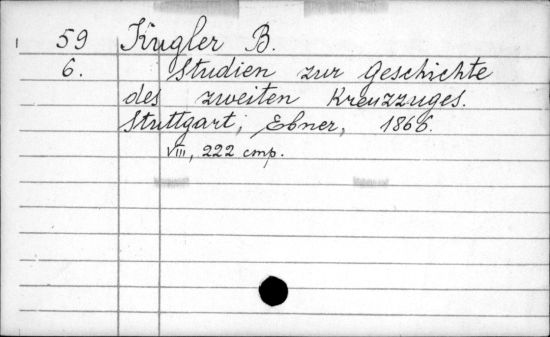 59 Kugler B.
6. Studien zur Geschichte
des zweiten Kreuzzuges.
Stuttgart, Ebner, 1866.
VIII, 222 стр.